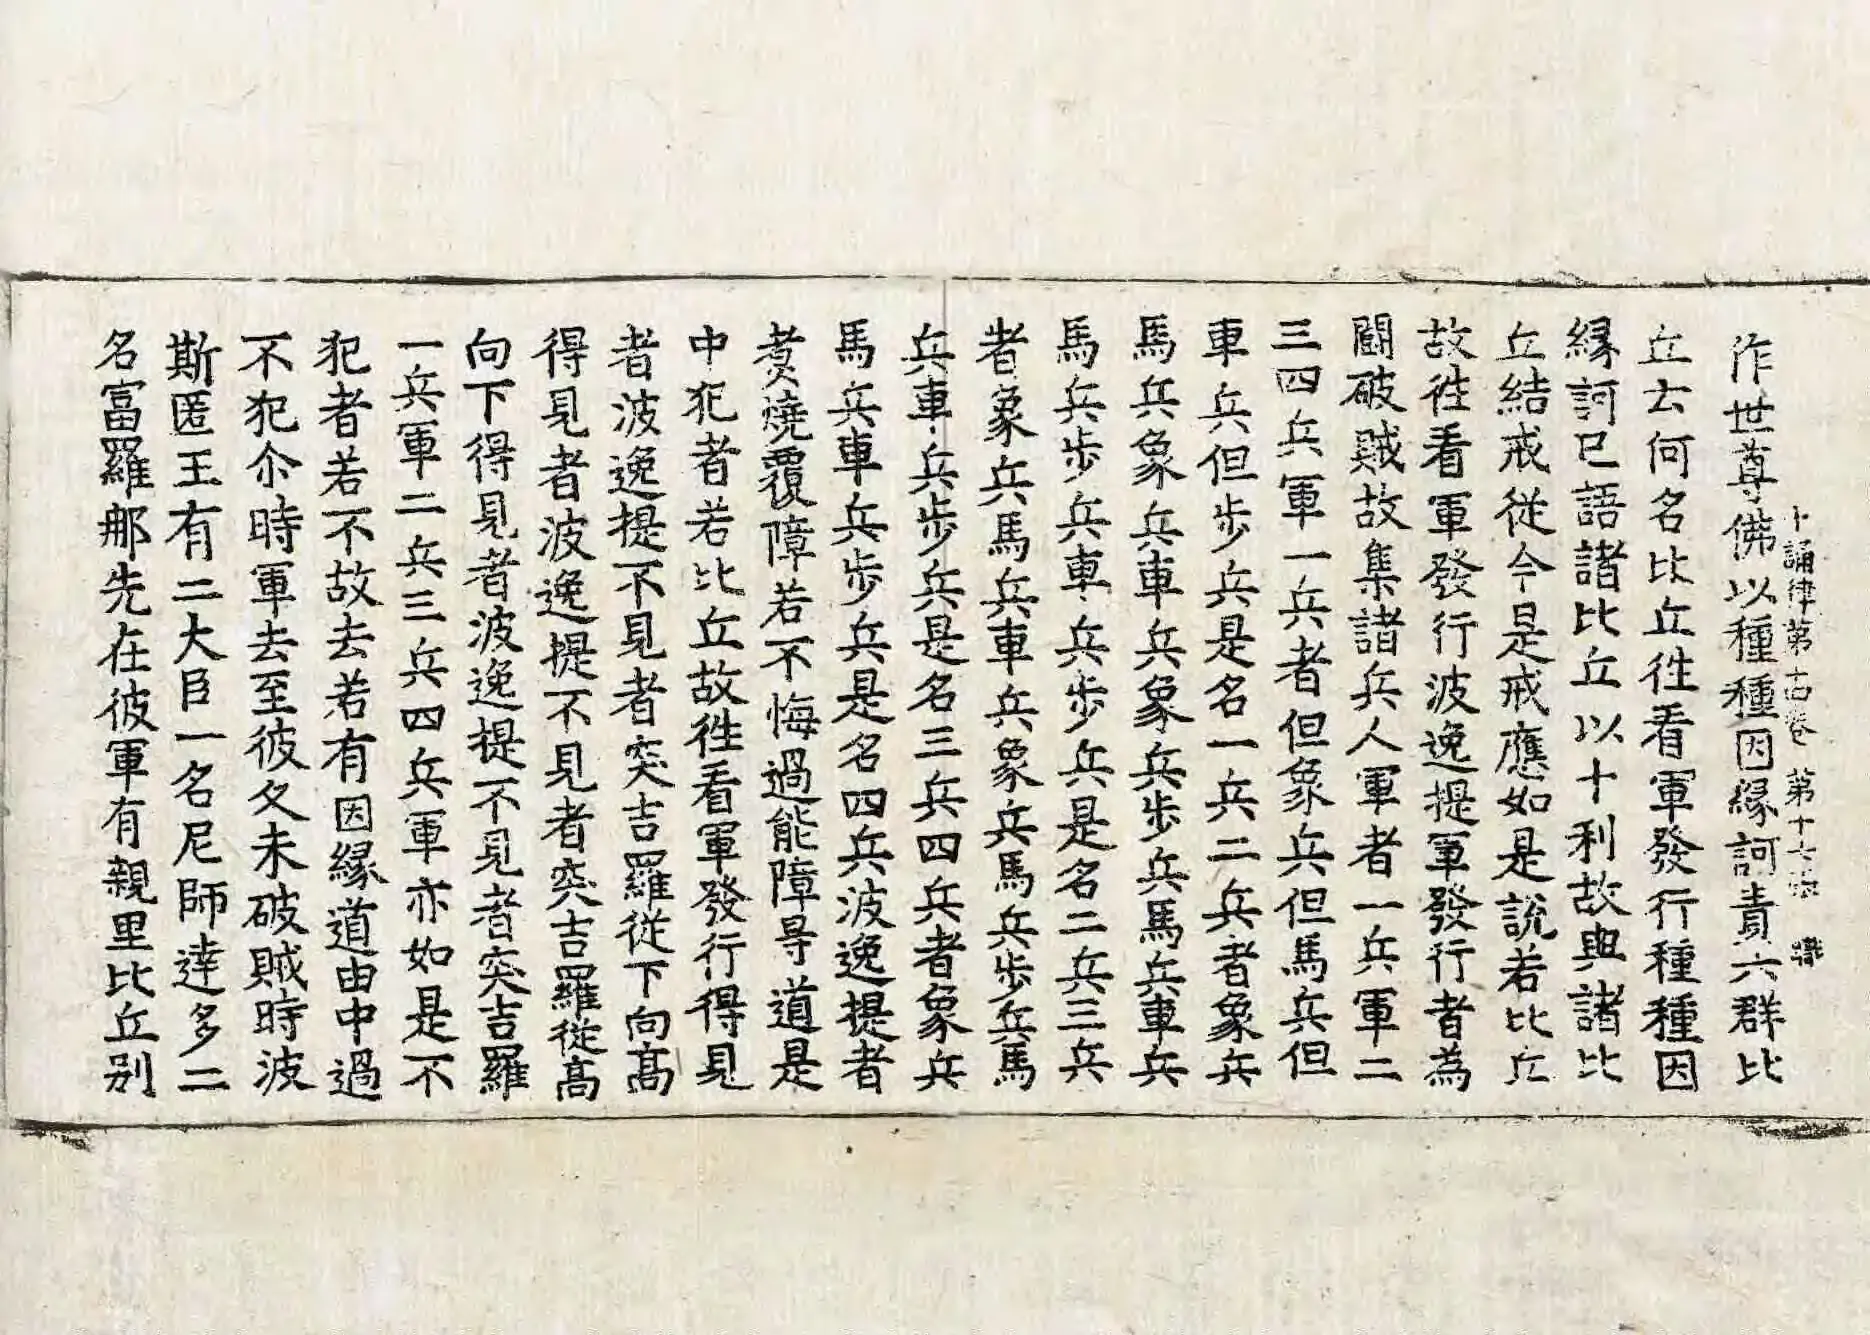 十誦律第十四卷 第十七張
作世尊佛以種種因縁訶責六群比
丘云何名比丘徃看軍發行種種因
縁訶已語諸比丘以十利故與諸比
丘結戒從今是戒應如是說若比丘
故徃看軍發行波逸提軍發行者為
鬪破賊故集諸兵人軍者一兵軍二
三四兵軍一兵者但象兵但馬兵但
車兵但步兵是名一兵二兵者象兵
馬兵象兵車兵象兵步兵馬兵車兵
馬兵步兵車兵步兵是名二兵三兵
者象兵馬兵車兵象兵馬兵步兵馬
兵車兵步兵是名三兵四兵者象兵
馬兵車兵步兵是名四兵波逸提者
煑燒覆障若不悔過能障㝵道是
中犯者若比丘故徃看軍發行得見
者波逸提不見者突吉羅從下向髙
得見者波逸提不見者突吉羅從髙
向下得見者波逸提不見者突吉羅
一兵軍二兵三兵四兵軍亦如是不
犯者若不故去若有因縁道由中過
不犯尒時軍去至彼久未破賊時波
斯匿王有二大臣一名尼師達多二
名富羅那先在彼軍有親里比丘別